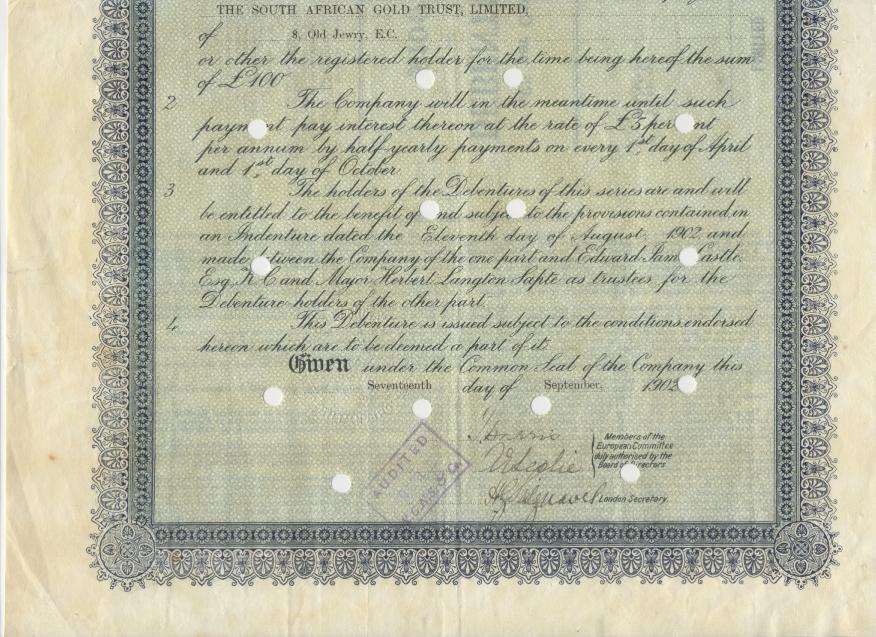 THE SOUTH AFRICAN GOLD TRUST, LIMITED,
of 8, Old Jewry, E.C.
or other the registered holder for the time being hereof the sum
of £100
2 The Company will in the meantime until such
paym nt pay interest thereon at the rate of £5 per nt
per annum by half yearly payments on every 1st day of April
and 1st day of October.
3 The holders of the Debentures of this series are and will
be entitled to the benefit of nd subje to the provisions contained in
an Indenture dated the Eleventh day of August 1902 and
made between the Company of the one part and Edward Jam Castle
Esq K C and Major Herbert Langton Sapte as trustees for the
Debenture-holders of the other part.
4 This Debenture is issued subject to the conditions endorsed
hereon which are to be deemed a part of it.
Given under the Common Seal of the Company this
Seventeenth day of September, 190
Members of the
European Committee
duly authorised by the
Board of Directors
London Secretary.
AUDITED